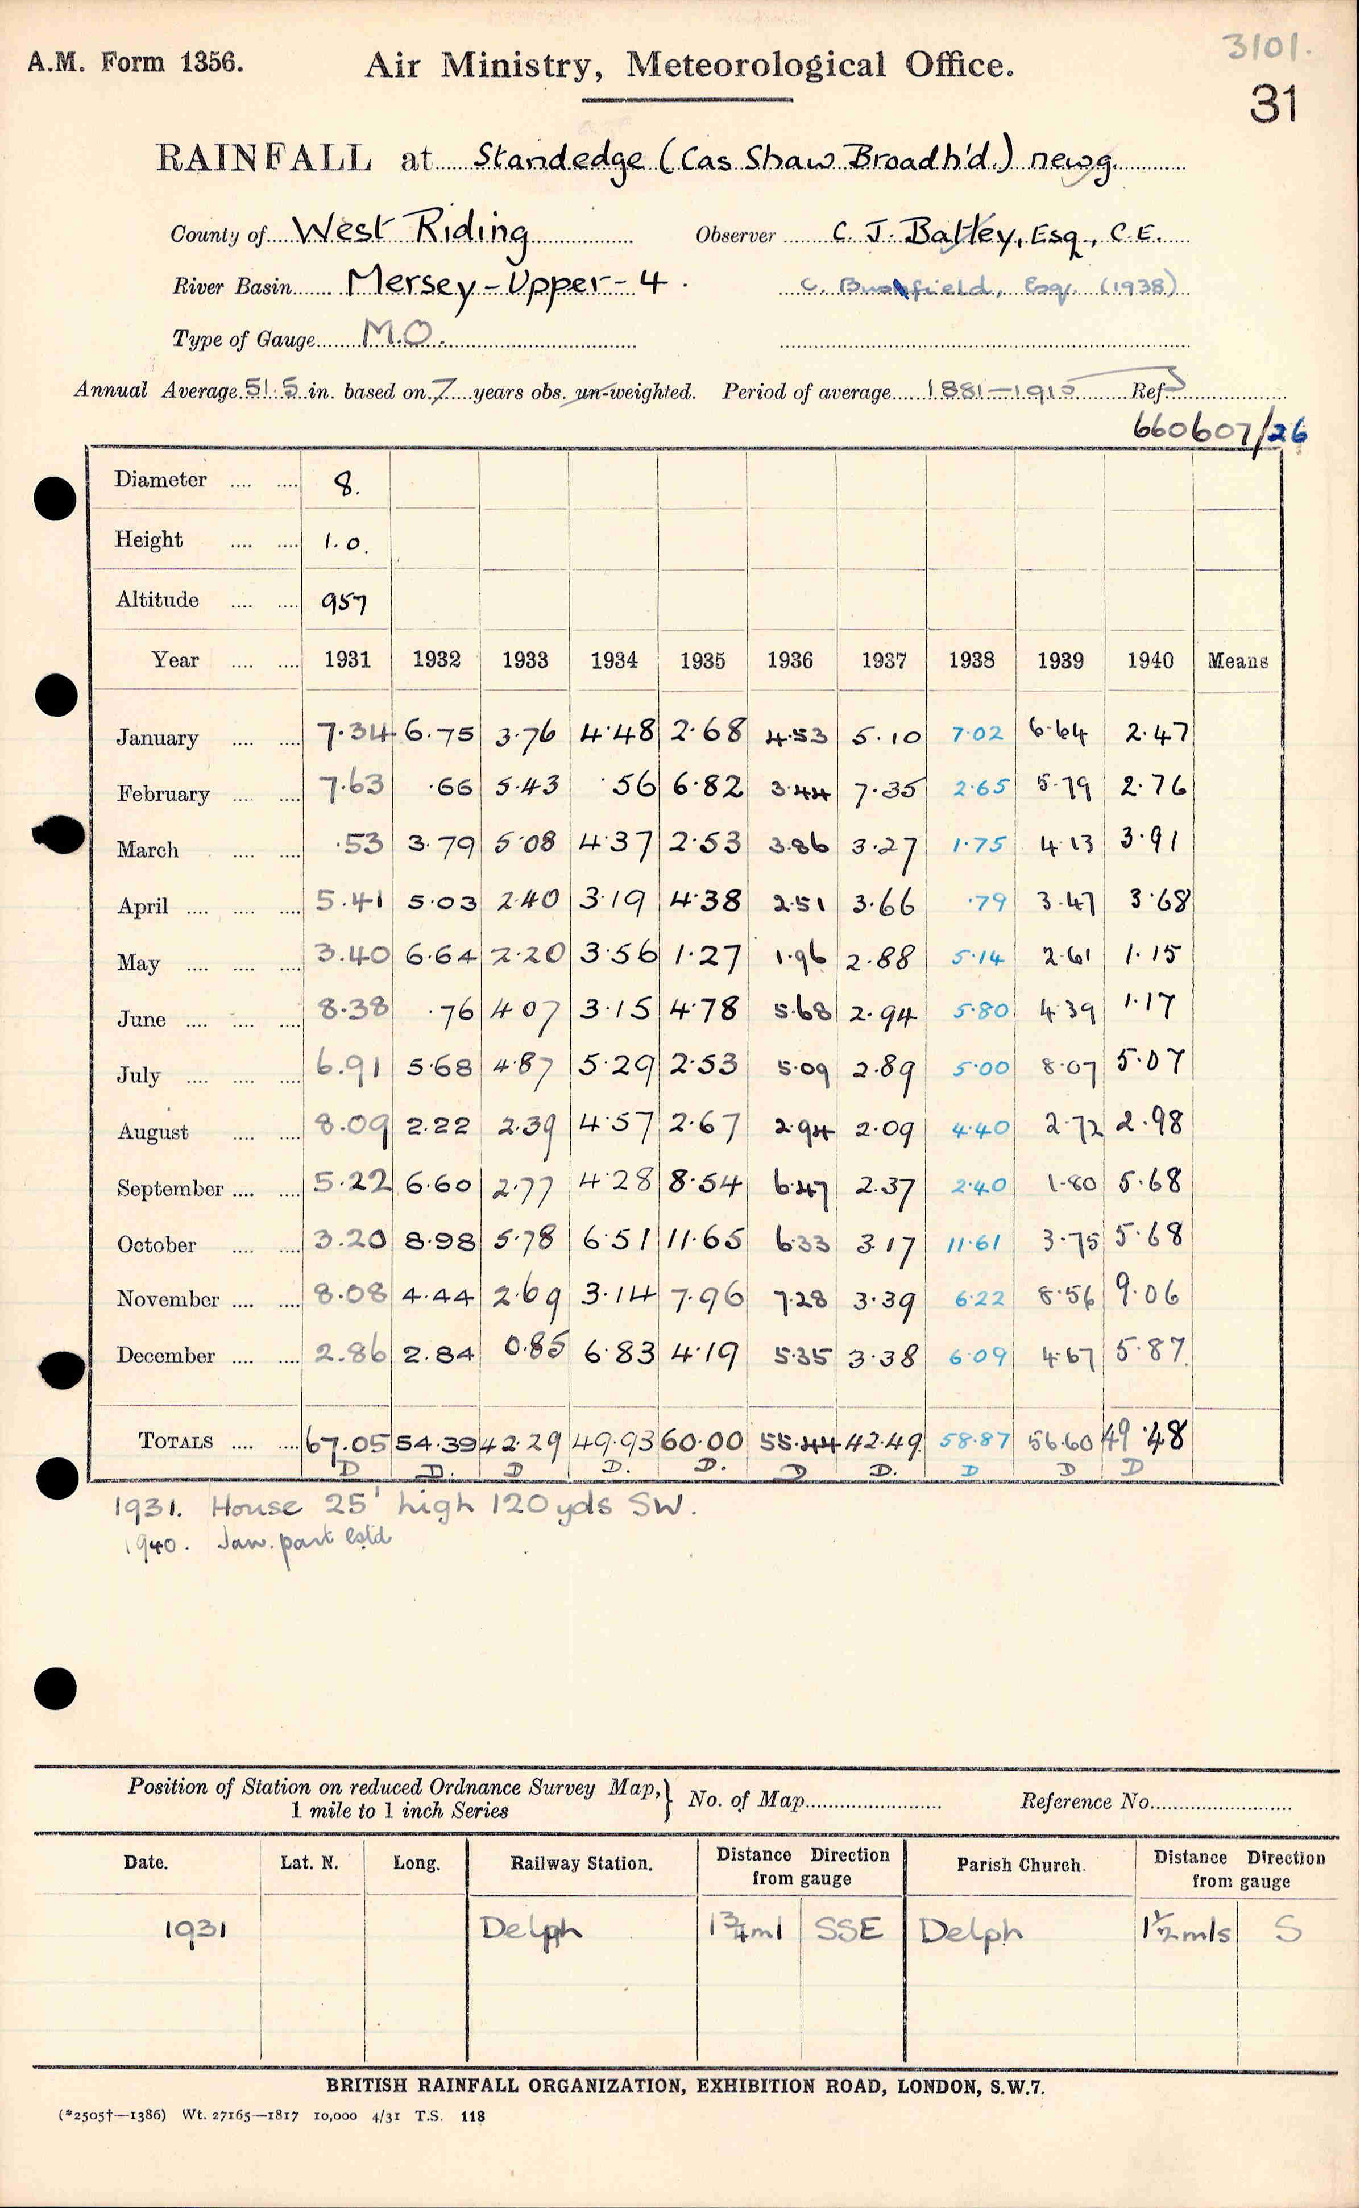 3101.
A.M. Form 1356. Air Ministry, Meteorological Office.
31
RAINFALL at Standedge (Cas Shaw Broadh'd.) newg.
County of West Riding Observer C. J. Batley, Esq., C.E.
River Basin Mersey-Upper-4. C. Esq. (1938)
Type of Gauge M.O.
Annual Average 51.5 in. based on 7 years obs. un-weighted. Period of average 1881-1915 Ref
660607/26
Diameter .... .... 8.
Height .... .... 1.0.
Altitude .... .... 957
Year .... .... 1931 1932 1933 1934 1935 1936 1937 1938 1939 1940 Means
January .... .... 7.34 6.75 3.76 4.48 2.68 4.53 5.10 7.02 6.64 2.47
February .... .... 7.63 .66 5.43 .56 6.82 3.44 7.35 2.65 5.79 2.76
March .... .... .53 3.79 5.08 4.37 2.53 3.86 3.27 1.75 4.13 3.91
April .... .... .... 5.41 5.03 2.40 3.19 4.38 2.51 3.66 .79 3.47 3.68
May .... .... .... 3.40 6.64 2.20 3.56 1.27 1.96 2.88 5.14 2.61 1.15
June .... .... .... 8.38 .76 4.07 3.15 4.78 5.68 2.94 5.80 4.39 1.17
July .... .... .... 6.91 5.68 4.87 5.29 2.53 5.09 2.89 5.00 8.07 5.07
August .... .... 8.09 2.22 2.39 4.57 2.67 2.94 2.09 4.40 2.72 2.98
September .... .... 5.22 6.60 2.77 4.28 8.54 6.47 2.37 2.40 1.80 5.68
October .... .... 3.20 8.98 5.78 6.51 11.65 6.33 3.17 11.61 3.75 5.68
November .... .... 8.08 4.44 2.69 3.14 7.96 7.28 3.39 6.22 8.56 9.06
December .... .... 2.86 2.84 0.85 6.83 4.19 5.35 3.38 6.09 4.67 5.87
TOTALS .... .... 67.05 54.39 42.29 49.93 60.00 55.44 42.49 58.87 56.60 49.48
D D. D D. D. D D. D D D
1931. House 25' high 120yds SW.
1940. Jan. part estd
Position of Station on reduced Ordnance Survey Map, } No. of Map........ Reference No........
1 mile to 1 inch Series
Date. Lat. N. Long. Railway Station. Distance Direction from gauge Parish Church. Distance Direction from gauge
1931 Delph 1¾ml SSE Delph 1½mls S
BRITISH RAINFALL ORGANIZATION, EXHIBITION ROAD, LONDON, S.W.7.
(*2505†—1386) Wt. 27165—1817 10,000 4/31 T.S. 118